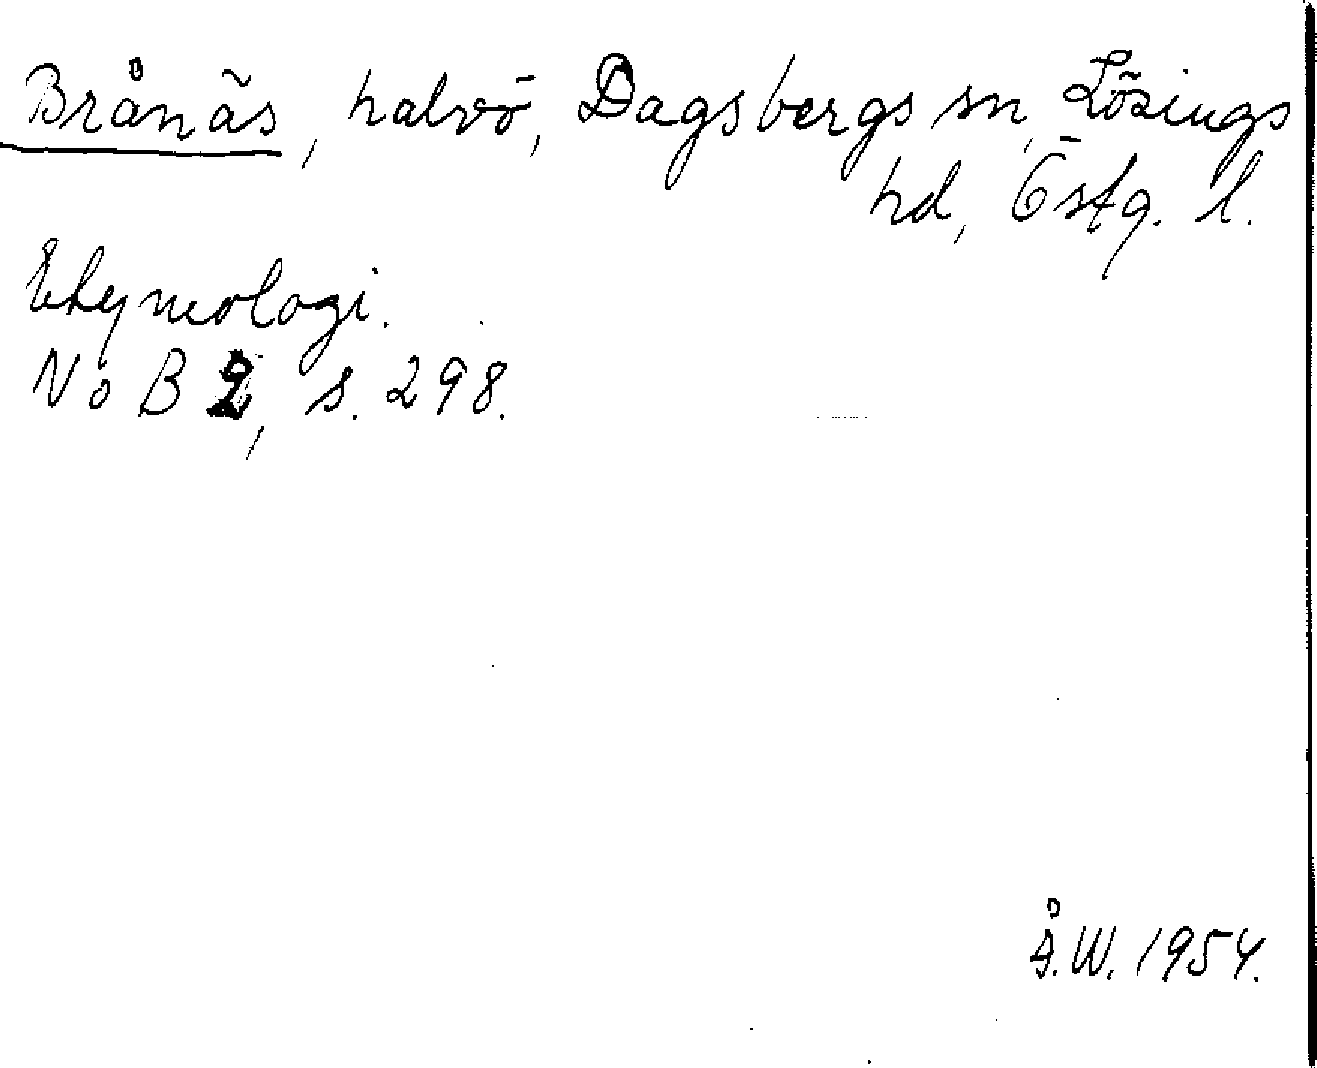 Brånäs, halvö, Dagsbergs sn, Lösings
hd, Östg. l.
Etymologi.
No B 2, s. 298.
Å.W. 1954.